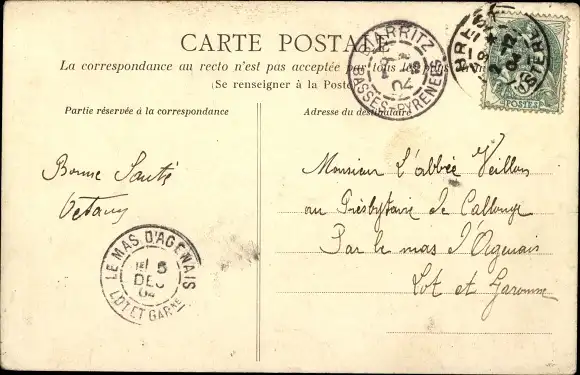 CARTE POSTALE
La correspondance au recto n'est pas acceptée par tous les pays
(Se renseigner à la Poste)
Partie réservée à la correspondance
Adresse du destinataire
BIARRITZ
04
BASSES-PYRENEES
POSTES
Bonne Santé
LE MAS D'AGENAIS
5
DEC
04
LOT ET GARNE
Monsieur L'abbée Veillon
au Présbytaire de Callonge
Par le mas d'Agenais
Lot et Garonne